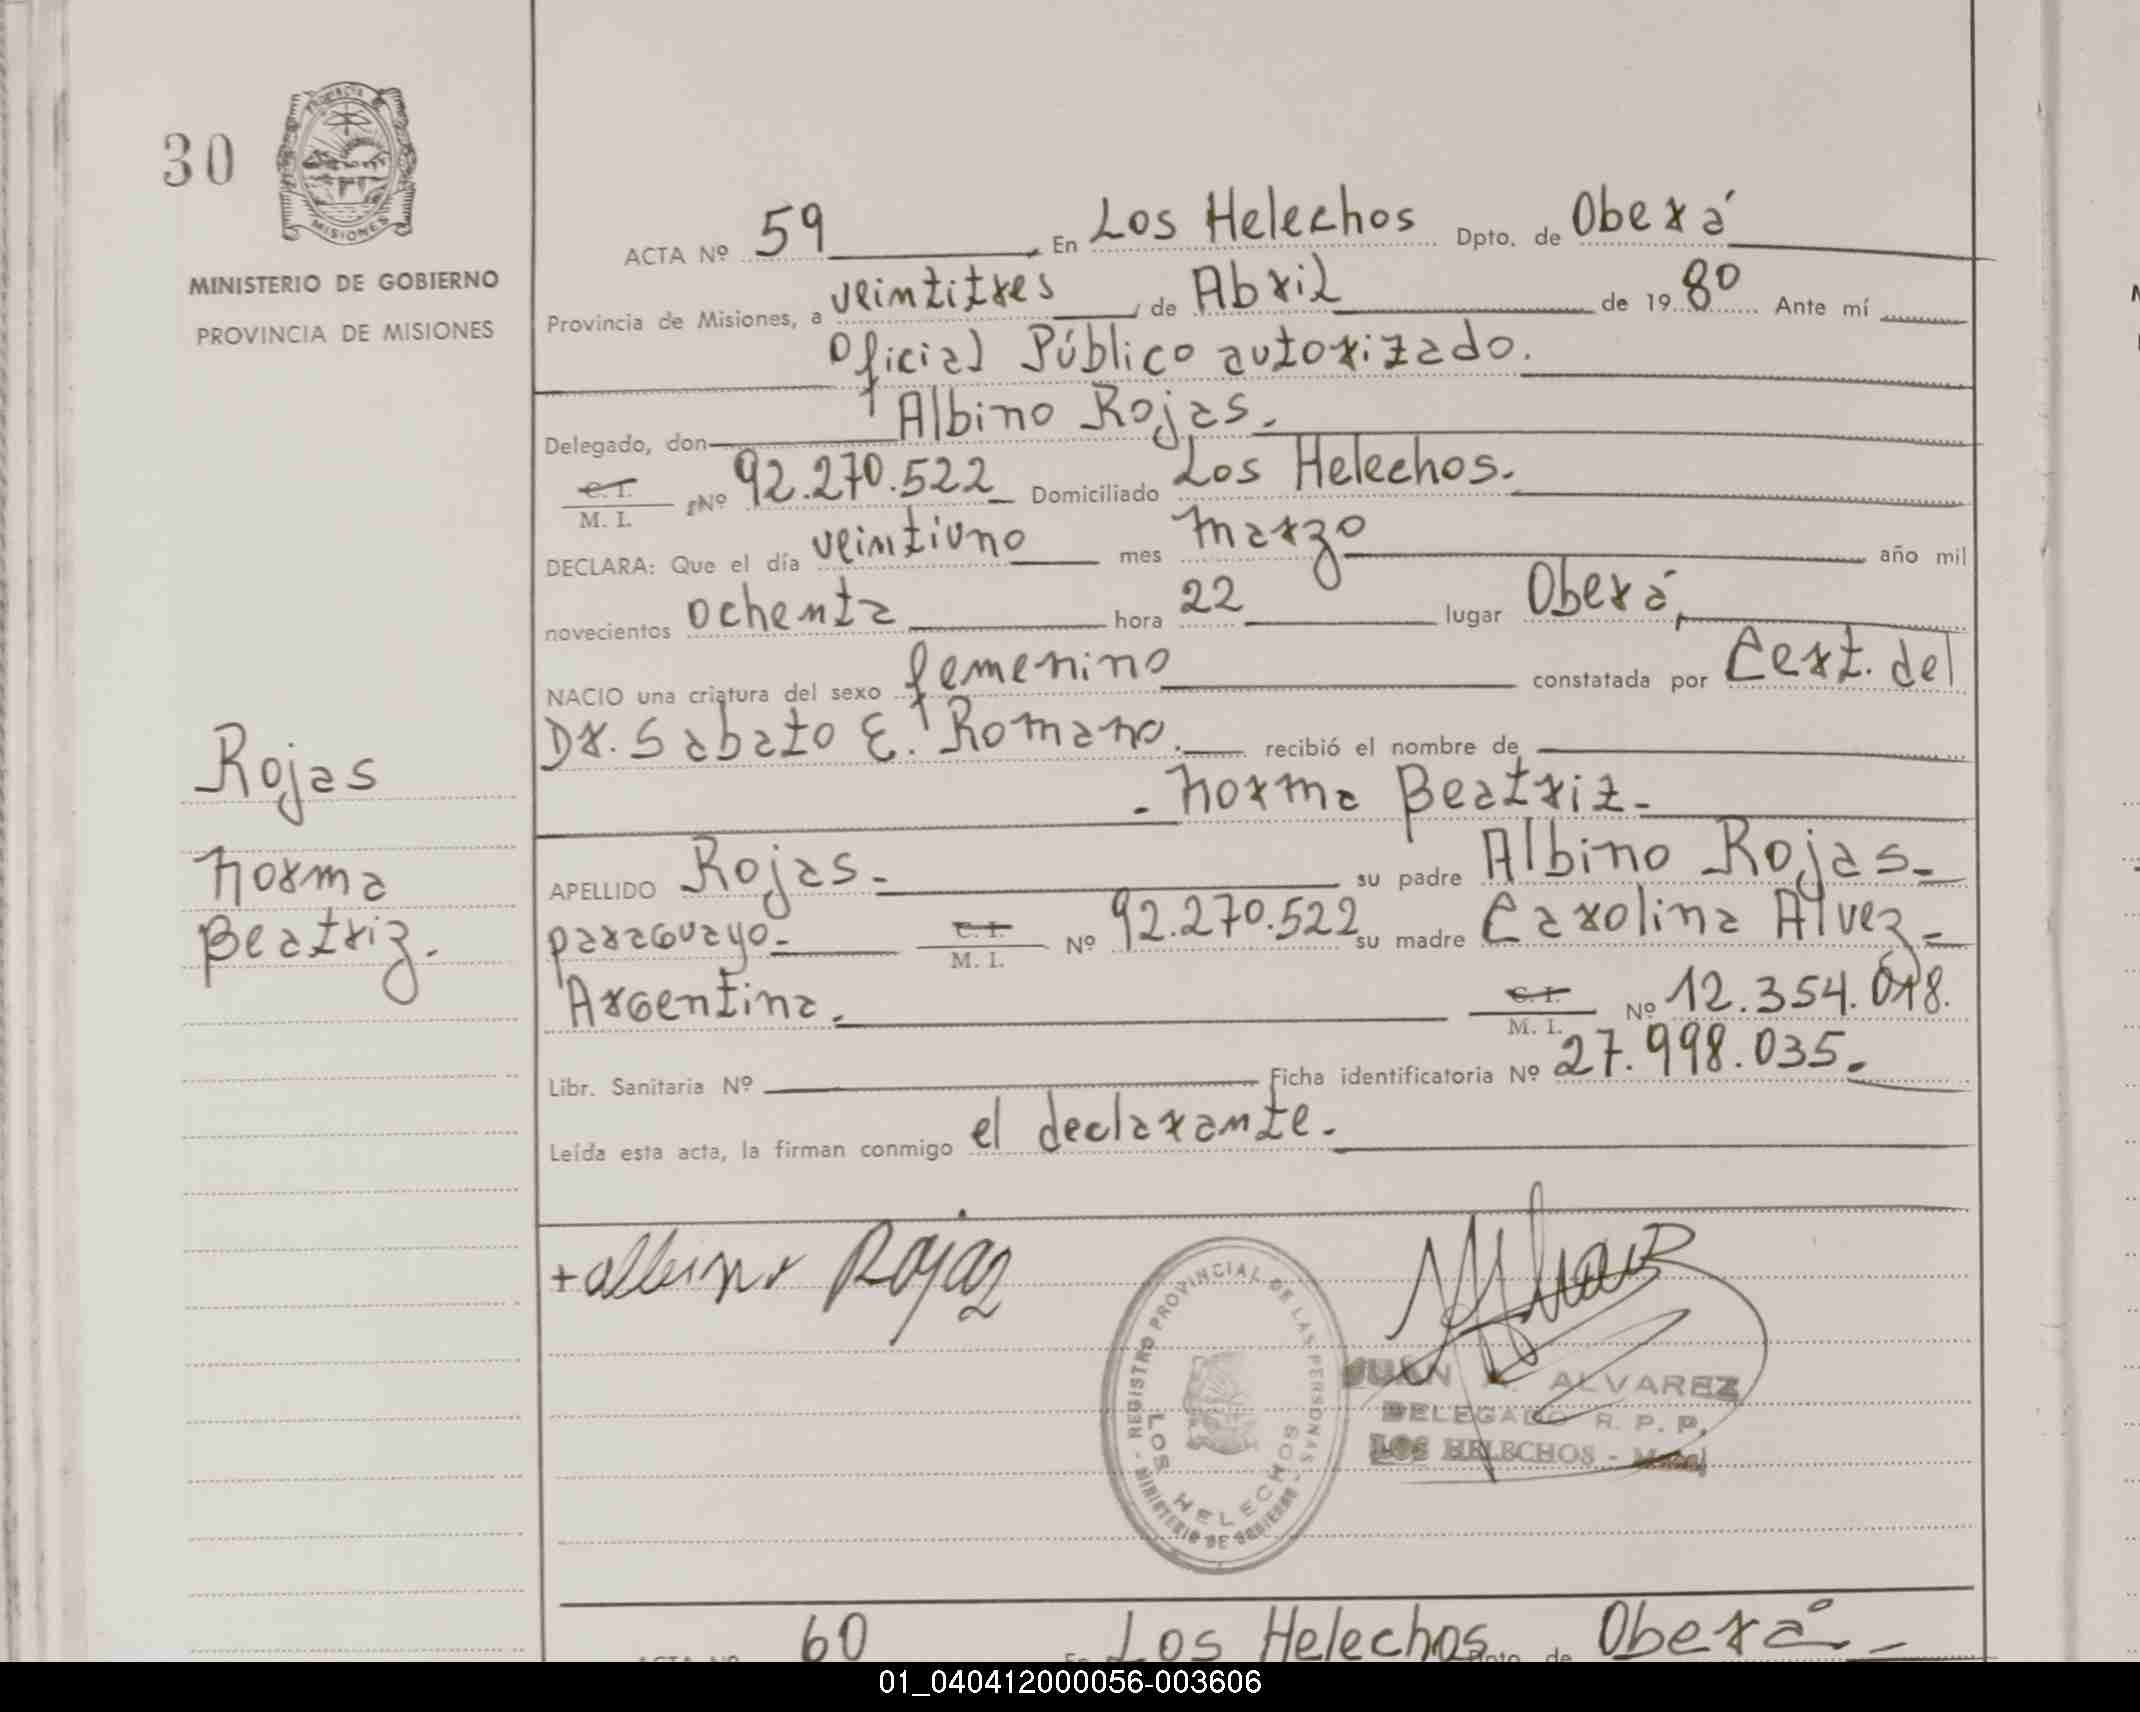 30
PROVINCIA
MISIONES
MINISTERIO DE GOBIERNO
PROVINCIA DE MISIONES
ACTA Nº 59 En Los Helechos Dpto. de Oberá
Provincia de Misiones, a veintitres de Abril de 19 80 Ante mí
Oficial Público autorizado.
Delegado, don Albino Rojas.
C. I.
M. I. Nº 92.270.522 Domiciliado Los Helechos.
DECLARA: Que el día veintiuno mes marzo año mil
novecientos ochenta hora 22 lugar Oberá,
NACIO una criatura del sexo femenino constatada por Cert. del
Dr. Sabato E. Romano. recibió el nombre de
- Norma Beatriz -
APELLIDO Rojas - su padre Albino Rojas -
paraguayo - C. I. M. I. Nº 92.270.522 su madre Carolina Alvez -
Argentina. C. I. M. I. Nº 12.354.018.
Libr. Sanitaria Nº Ficha identificatoria Nº 27.998.035.
Leída esta acta, la firman conmigo el declarante.
Rojas
Norma
Beatriz.
+ albino Rojaz
REGISTRO PROVINCIAL DE LAS PERSONAS - MINISTERIO DE GOBIERNO -
LOS HELECHOS
JUAN A. ALVAREZ
DELEGADO R. P. P.
LOS HELECHOS -
ACTA Nº 60 En Los Helechos Dpto. de Oberá
01_040412000056-003606